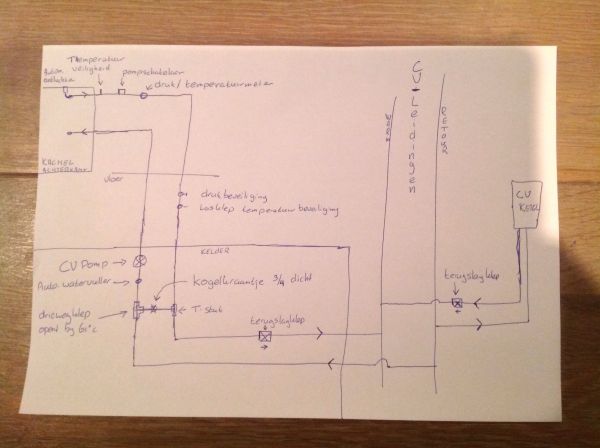 Temperatuur
veiligheid
Autom.
ontluchter
pompschakelaar
druk/temperatuurmeter
KACHEL
ACHTERKANT
Vloer
drukbeveiliging
Losklep temperatuur beveiliging
KELDER
CV Pomp
Auto. watervuller
kogelkraantje 3/4 dicht
driewegklep
open bij 61°C
T-stuk
terugslagklep
CV-Leidingen
AANV
RETOUR
CV
KETEL
terugslagklep